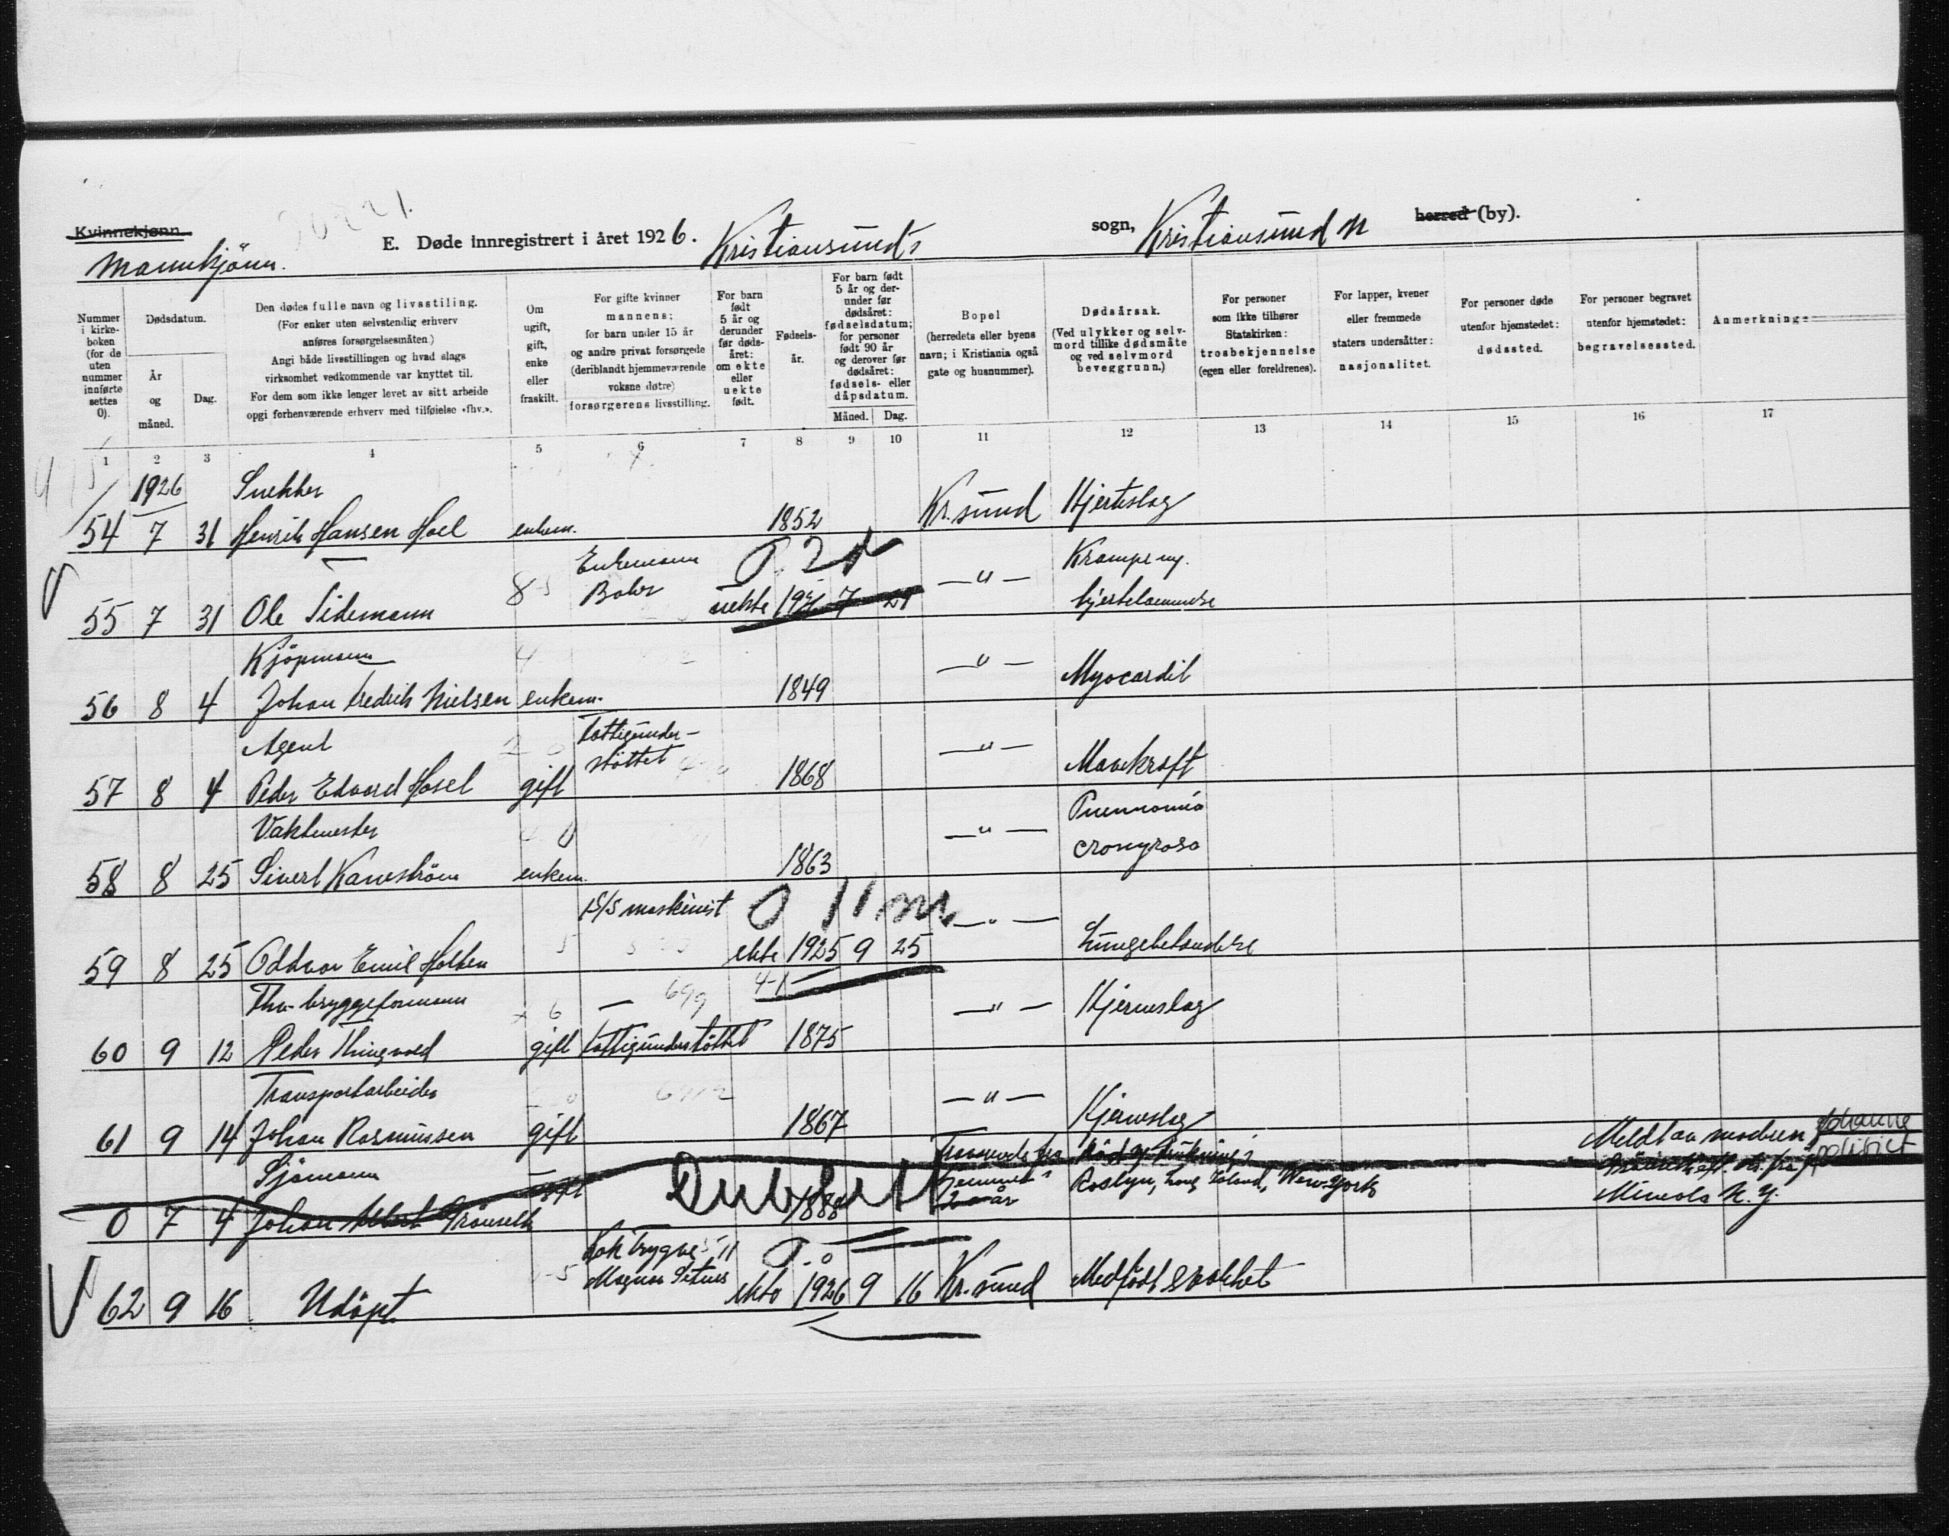 Kvinnekjønn.
Mannkjönn.
E. Døde innregistrert i året 1926. Kristiansunds sogn, Kristiansund N herred (by).
Nummer i kirke-boken (for de uten nummer innførte settes 0).
Dødsdatum.
År og måned.
Dag.
Den dødes fulle navn og livsstiling.
(For enker uten selvstendig erhverv anføres forsørgelsesmåten.)
Angi både livsstillingen og hvad slags virksomhet vedkommende var knyttet til.
For dem som ikke lenger levet av sitt arbeide opgi forhenværende erhverv med tilføielse «fhv.».
Om ugift, gift, enke eller fraskilt.
For gifte kvinner mannens; for barn under 15 år og andre privat forsørgede (deriblandt hjemmeværende voksne døtre) forsørgerens livsstilling.
For barn født 5 år og derunder før døds-året: om ekte eller uekte født.
Fødsels-år.
For barn født 5 år og der-under før dødsåret: fødselsdatum; for personer født 90 år og derover før dødsåret: fødsels- eller dåpsdatum.
Måned.
Dag.
Bopel
(herredets eller byens navn; i Kristiania også gate og husnummer).
Dødsårsak.
(Ved ulykker og selv-mord tillike dødsmåte og ved selvmord beveggrunn.)
For personer som ikke tilhører Statskirken: trosbekjennelse (egen eller foreldrenes).
For lapper, kvener eller fremmede staters undersåtter: nasjonalitet.
For personer døde utenfor hjemstedet: dødssted.
For personer begravet utenfor hjemstedet: begravelsessted.
Anmerkninger
1 2 3 4 5 6 7 8 9 10 11 12 13 14 15 16 17
1926 Snekker
54 7 31 Henrik Hansen Hoel enkem. 1852 Kr.sund Hjerteslag
Enkemann 0. 2 d
55 7 31 Ole Sidemann uekte 1926 7 29 —"— Krampe og hjertelammelse
Kjöpmann
56 8 4 Johan Fredrik Nielsen enkem. 1849 —"— Myocardit
Agent Fattigunder-støttet
57 8 4 Peder Edvard Hosel gift 1868 —"— Mavekræft
Vaktmester
58 8 25 Sivert Kanestrøm enkem. 1863 —"— Pneumonia
S/S maskinist 0 11 m
59 8 25 Oddvar Emil Holten ekte 1925 9 25 —"— Lungebetendelse
Fhv. bryggeformann
60 9 12 Peder Thingvold gift fattigunderstöttet 1875 —"— Hjerneslag
Transportarbeider
61 9 14 Johan Rasmussen gift 1867 —"— Hjerneslag
Sjömann
0 7 4 Johan Albert 1888 2 år Roslyn, Long Island, New-York
Meldt av moderen Johanne
politiet
Mineola N.Y.
Dubhett
Kok Trygve
0. 0
62 9 16 Udöpt Magnus ekte 1926 9 16 Kr.sund Medfödt svakhet